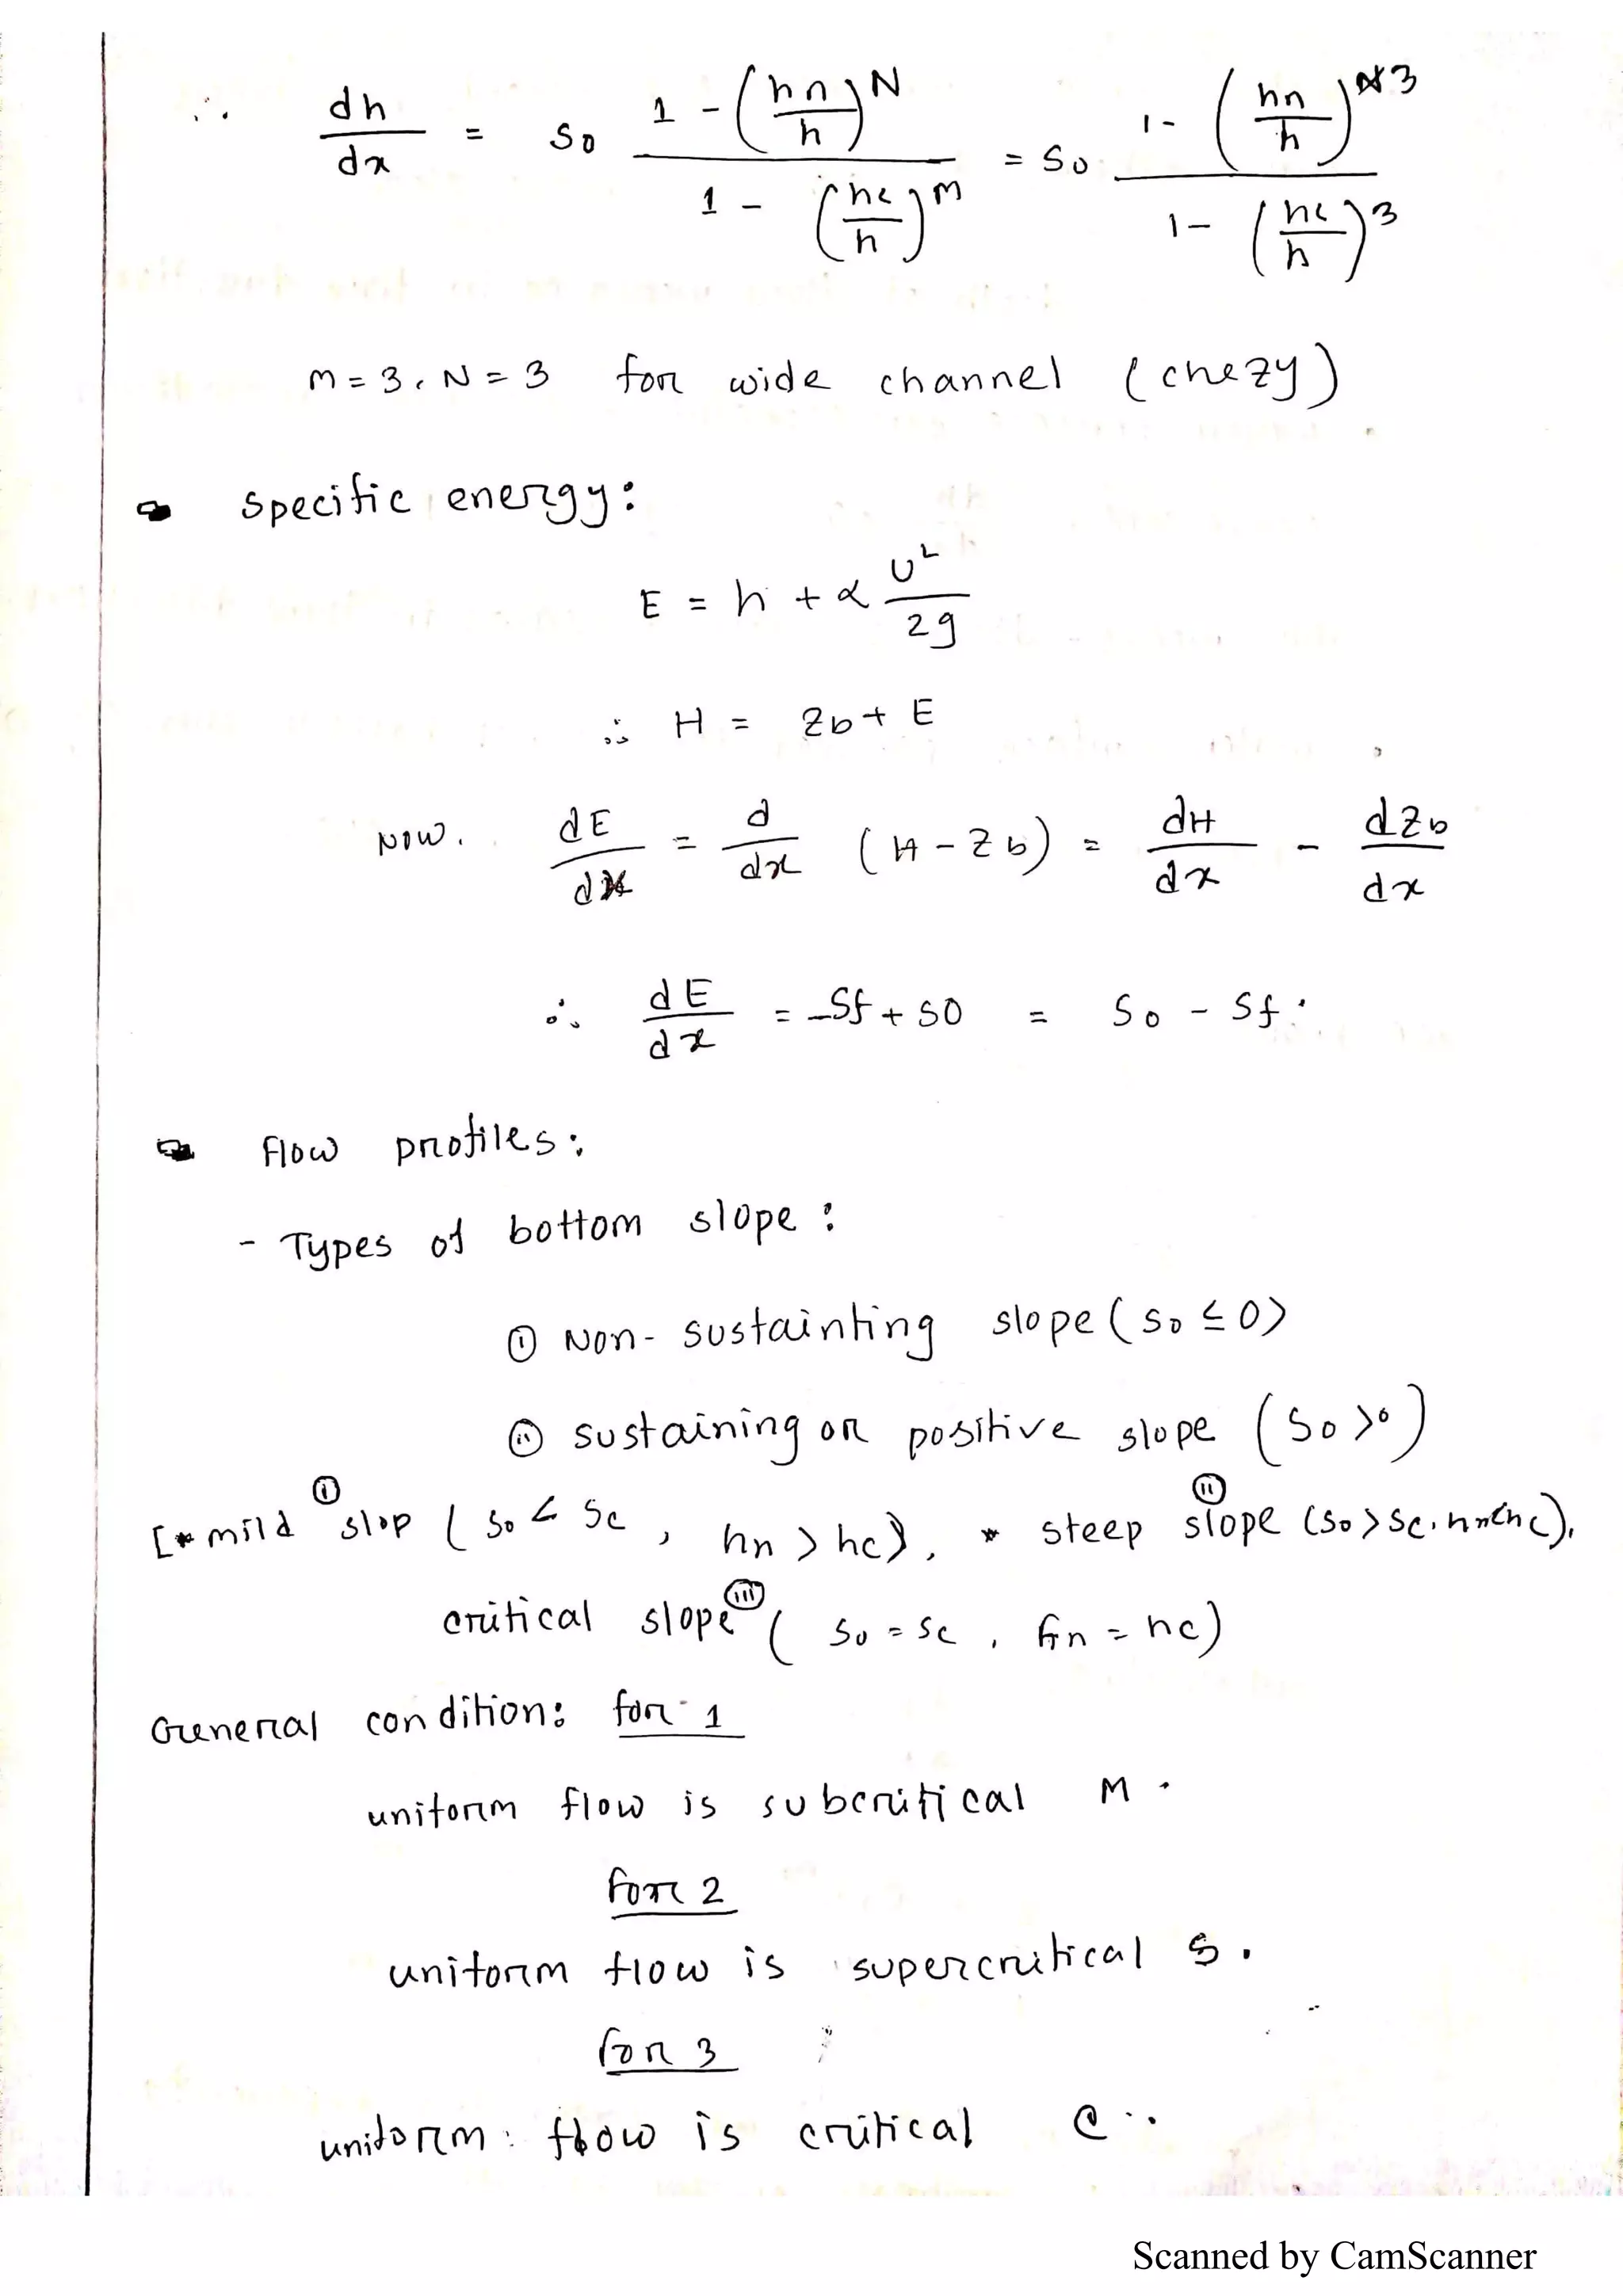 ∴ dh/dx = So (1 - (hn/h)^N) / (1 - (hc/h)^M) = So (1 - (hn/h)^3) / (1 - (hc/h)^3)
M = 3, N = 3 for wide channel (chezy)
specific energy:
E = h + α U²/2g
∴ H = Zb + E
Now. dE/dx = d/dx (H - Zb) = dH/dx - dZb/dx
∴ dE/dx = -Sf + SO = So - Sf.
Flow profiles:
- Types of bottom slope:
(i) Non-sustainting slope (So ≤ 0)
(ii) sustaining or positive slope (So > 0)
[* mild (i) slop (So < Sc, hn > hc), * steep (ii) slope (So > Sc, hn < hc),
critical slope (iii) (So = Sc, hn = hc)
General condition: for 1
uniform flow is subcritical M.
for 2
uniform flow is supercritical S.
for 3
uniform flow is critical C.
Scanned by CamScanner